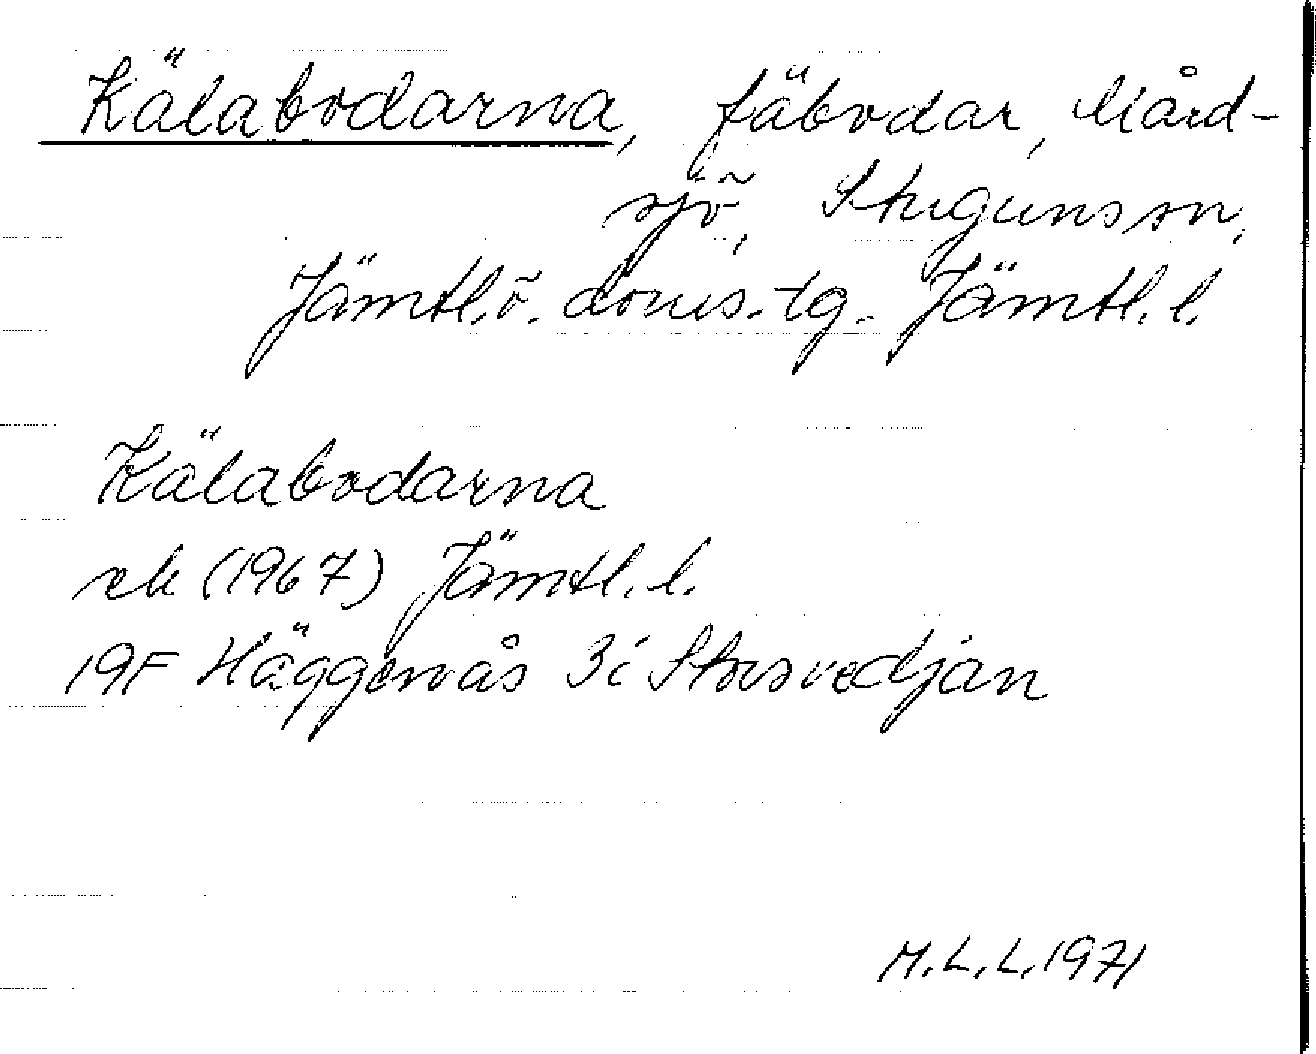 Kälabodarna, fäbodar, Mård-
sjö, Stuguns sn,
Jämtl. ö. doms. tg. Jämtl. l.
Kälabodarna
ek (1967) Jämtl. l.
19F Häggenås 3i Storsvedjan
M.L.L. 1971